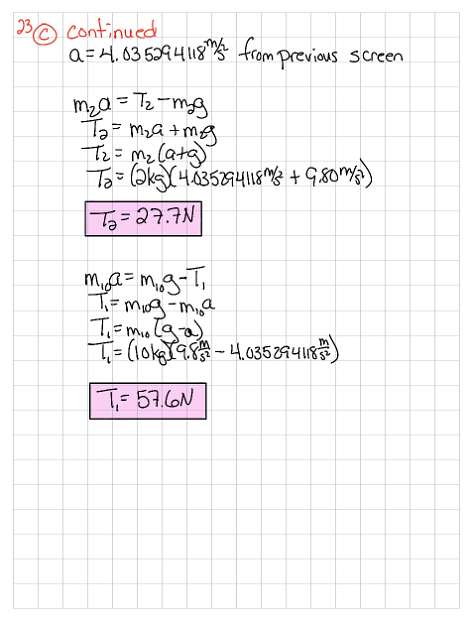 23 ⓒ continued
a = 4.035294118 m/s² from previous screen
m₂a = T₂ - m₂g
T₂ = m₂a + m₂g
T₂ = m₂(a+g)
T₂ = (2kg)(4.035294118 m/s² + 9.80 m/s²)
T₂ = 27.7N
m₁₀a = m₁₀g - T₁
T₁ = m₁₀g - m₁₀a
T₁ = m₁₀(g-a)
T₁ = (10kg)(9.8 m/s² - 4.035294118 m/s²)
T₁ = 57.6N